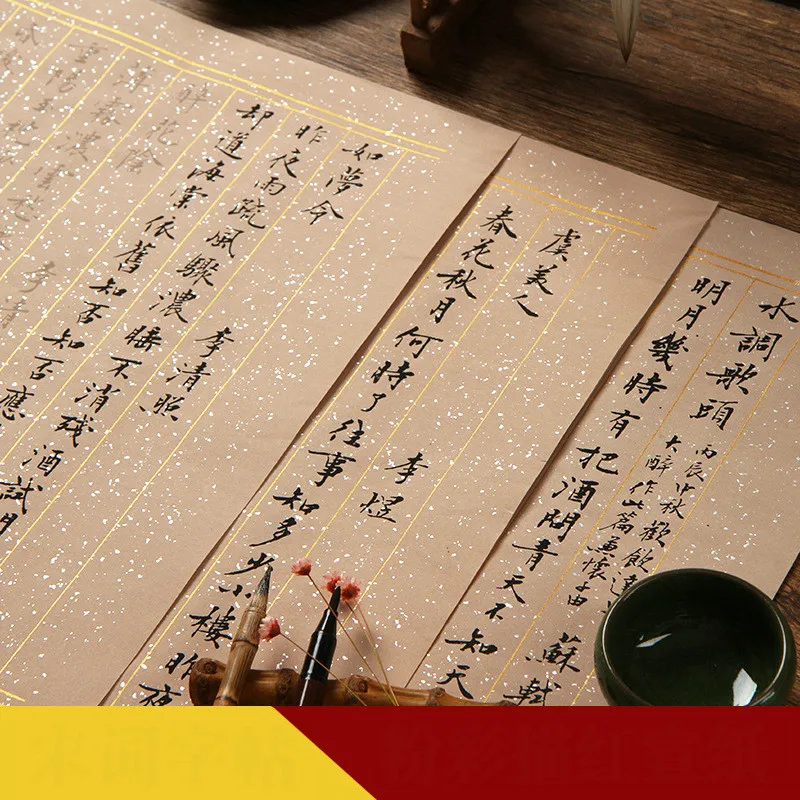 水調歌頭
丙辰中秋歡飲達
大醉作此篇兼懷子由
蘇軾
明月幾時有把酒問青天不知天
虞美人
李煜
春花秋月何時了往事知多少小樓昨夜
如夢令
李清照
昨夜雨疏風驟濃睡不消殘酒試問
却道海棠依舊知否知否應
醉花陰
李清
薄霧濃雲愁